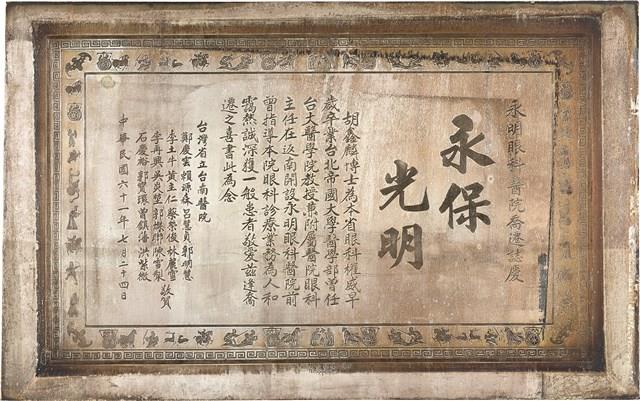 永明眼科醫院喬遷誌慶
永保
光明
胡鑫麟博士為本省眼科權威早
歲卒業台北帝國大學醫學部曾任
台大醫學院教授兼附屬醫院眼科
主任在返南開設永明眼科醫院前
曾指導本院眼科診療業務為人和
靄然誠深獲一般患者敬愛茲逢喬
遷之喜書此為念
台灣省立台南醫院
鄭慶雲 賴源森 呂慧貞 郭炳慧
李土牛 黃主仁 蔡榮俊 林麗雪 敬賀
李再興 吳炎 陳雪梨
石慶裕 郭寶環 曾鎮藩 洪紫微
中華民國六十一年七月二十四日